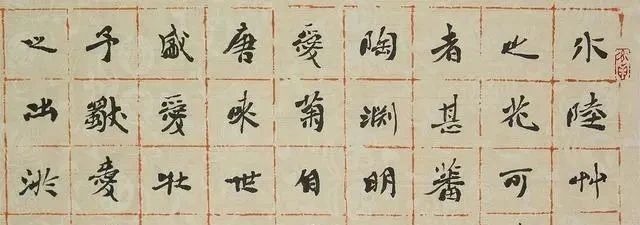 水陸艸
之花可
者甚蕃
陶淵明
愛菊自
唐來世
盛愛牡
予獨愛
之出淤